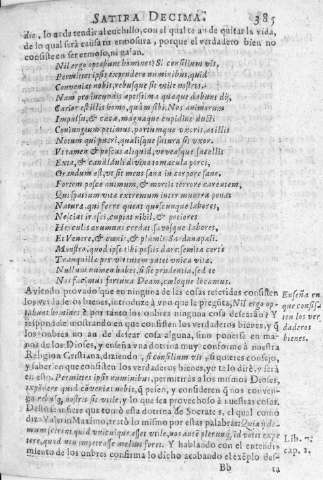 SATIRA DECIMA. 385
de lo qual será causa tu ermosura, porque el verdadero bien no
consiste en ser ermoso, ni galan.
Nil ergo optabunt homines? Si consilium vis,
Permittes ipsis expendere numinibus, quid
Conveniat nobis, rebusque sit utile nostris.
Nam pro iucundis aptissima quaeque dabunt dij,
Carior est illis homo, quàm sibi. Nos animorum
Impulsu, & caeca, magnaque cupidine ducti
Coniugium petimus, partumque uxoris, at illis
Notum qui pueri, qualisque futura sit uxor.
Ut tamen & poscas aliquid, voveasque sacellis
Exta, & candiduli divina tomacula porci,
Orandum est, ut sit mens sana in corpore sano.
Fortem posce animum, & mortis terrore carentem,
Qui spatium vitae extremum inter munera ponat
Naturae, qui ferre queat quoscunque labores,
Nesciat irasci, cupiat nihil, & potiores
Herculis aerumnas credat, saevosque labores,
Et Venere, & cœnis, & plumis Sardanapali.
Monstro, quod ipse tibi possis dare: semita certe
Tranquillae per virtutem patet unica vitae.
Nullum numen habes, si sit prudentia, sed te
Nos facimus, Fortuna, Deam, coeloque locamus.
Aviendo provado que en ninguna de las cosas referidas consisten
los verdaderos bienes, introduze à uno que le pregũta, Nil ergo op-
tabunt homines? por tanto los onbres ninguna cosa desearán? Y
responde mostrando en que consisten los verdaderos bienes, y q̃
los onbres no an de desear cosa alguna, sino ponerse en ma-
nos de los Dioses, y enseña una dotrina muy conforme à nuestra
Religion Cristiana, diziendo, si consilium vis, si quieres consejo,
y saber en que consisten los verdaderos bienes, yo te lo diré, y está
en esto. Permittes ipsis numinibus, permitirás a los mismos Dioses,
expendere quid conveniat nobis, q̃ pesen, y consideren q̃ nos conven-
ga rebusq; nostris sit utile, y lo que sea provechoso à nuestras cosas.
dize Valerio Maximo, trató lo mismo por estas palabras:
miento de los onbres confirma lo dicho acabando el exẽplo des-
Bb ta
Enseña en
que consis-
ten los ver-
daderos
bienes.
Lib. 7.
cap. 2.